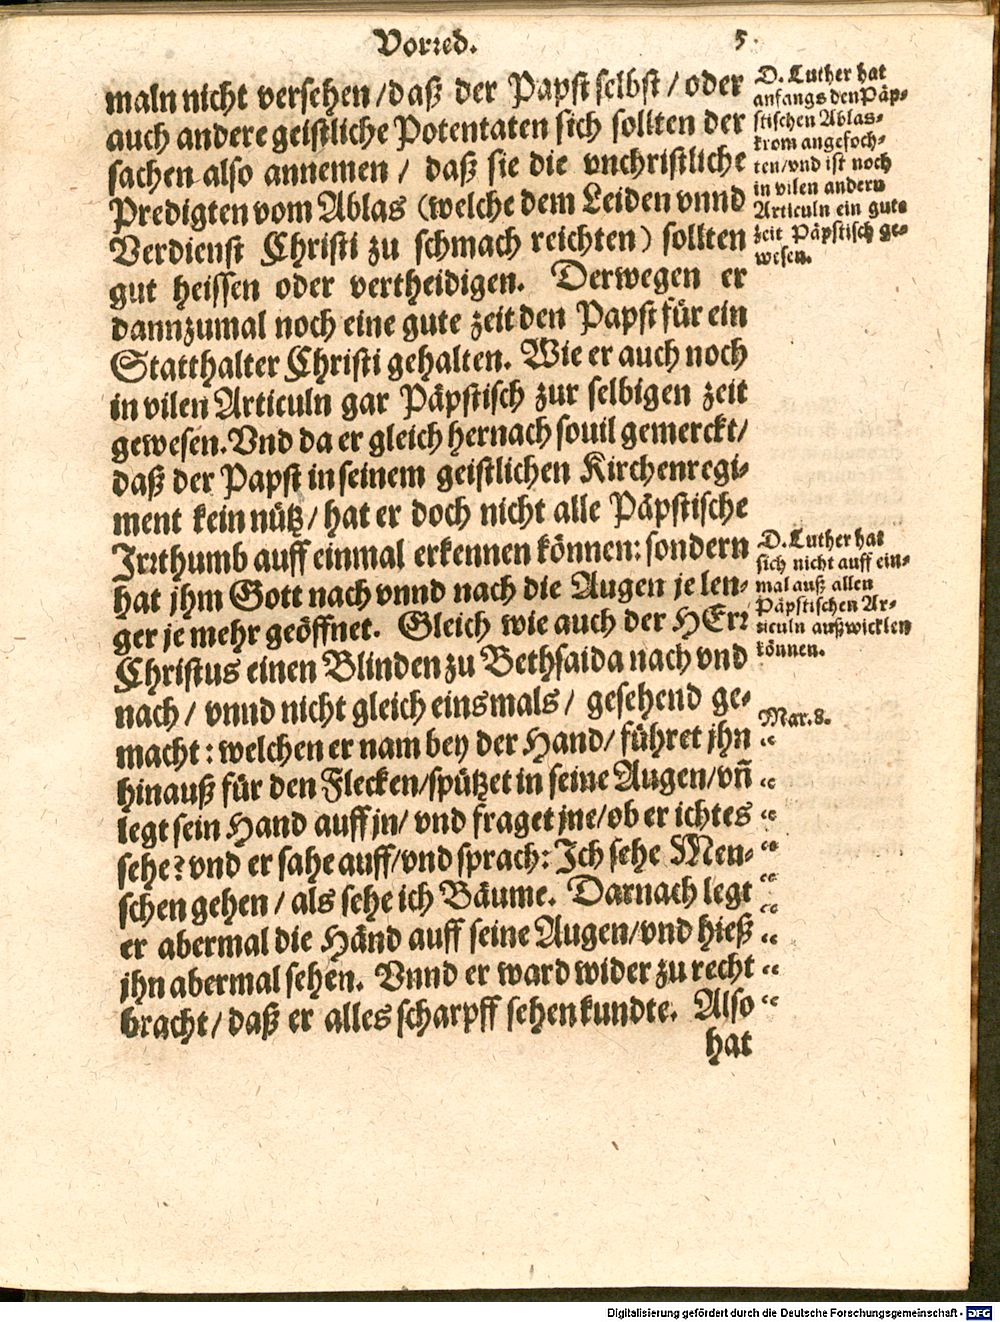 Vorred. 5
maln nicht versehen/daß der Papst selbst/ oder
auch andere geistliche Potentaten sich sollten der
sachen also annemen / daß sie die vnchristliche
Predigten vom Ablas (welche dem Leiden vnnd
Verdienst Christi zu schmach reichten) sollten
gut heissen oder vertheidigen. Derwegen er
dannzumal noch eine gute zeit den Papst für ein
Statthalter Christi gehalten. Wie er auch noch
in vilen Articuln gar Päpstisch zur selbigen zeit
gewesen. Vnd da er gleich hernach souil gemerckt/
daß der Papst in seinem geistlichen Kirchenregi-
ment kein nütz/ hat er doch nicht alle Päpstische
Irrthumb auff einmal erkennen können: sondern
hat jhm Gott nach vnnd nach die Augen je len-
ger je mehr geöffnet. Gleich wie auch der HErr
Christus einen Blinden zu Bethsaida nach vnd
nach/ vnnd nicht gleich einsmals/ gesehend ge-
macht: welchen er nam bey der Hand/ führet jhn
hinauß für den Flecken/spützet in seine Augen/vñ
legt sein Hand auff jn/ vnd fraget jne/ob er ichtes
sehe? vnd er sahe auff/vnd sprach: Ich sehe Men-
schen gehen / als sehe ich Bäume. Darnach legt
er abermal die Händ auff seine Augen/vnd hieß
jhn abermal sehen. Vnnd er ward wider zu recht
bracht/ daß er alles scharpff sehen kundte. Also
hat
D. Luther hat
anfangs den Päp-
stischen Ablas-
krom angefoch-
ten/vnd ist noch
in vilen andern
Articuln ein gute
zeit Päpstisch ge-
wesen.
D. Luther hat
sich nicht auff ein-
mal auß allen
Päpstischen Ar-
ticuln außwicklen
können.
Mar. 8.
Digitalisierung gefördert durch die Deutsche Forschungsgemeinschaft - DFG